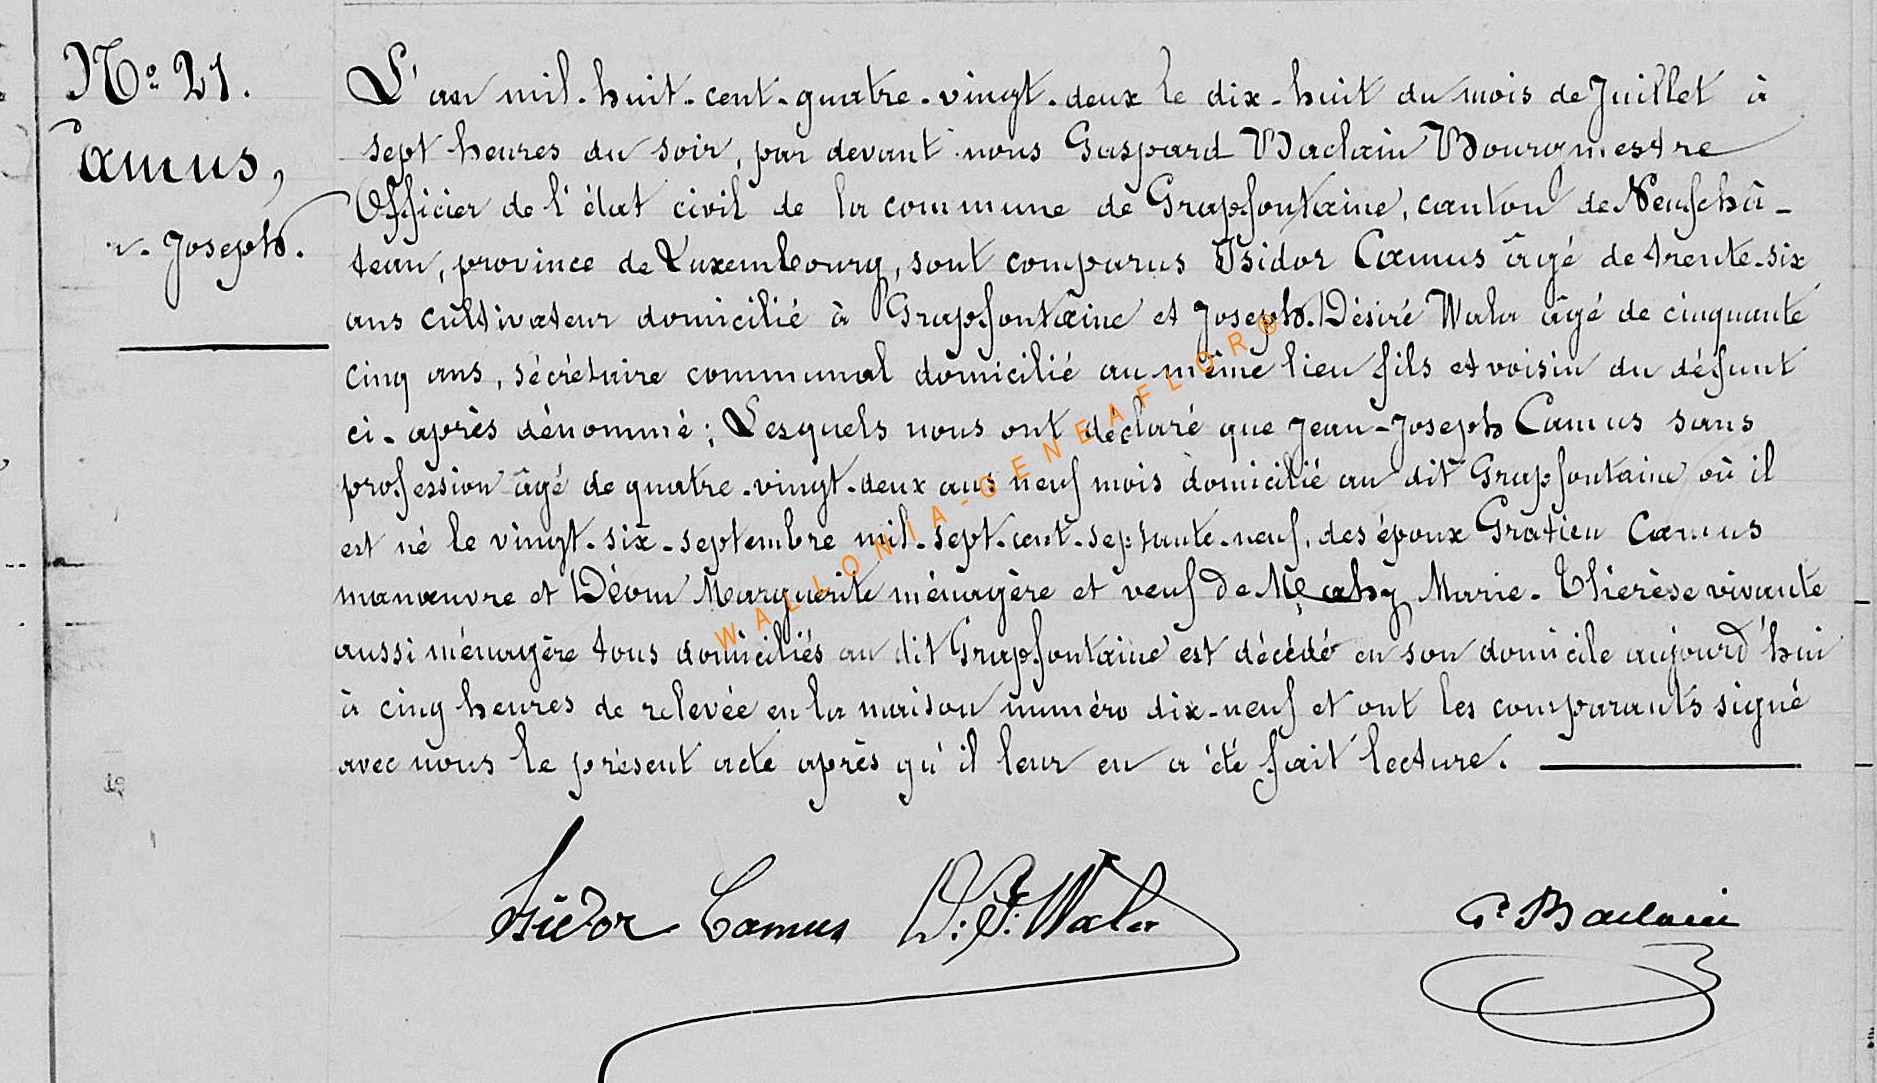 No 21.
Camus,
n. Joseph.
L'an mil-huit-cent-quatre-vingt-deux le dix-huit du mois de Juillet à
sept heures du soir, par devant nous Gaspard Baclain Bourgmestre
Officier de l'état civil de la commune de Grapfontaine, canton de Neufchâ-
teau, province de Luxembourg, sont comparus Isidor Camus âgé de trente-six
ans cultivateur domicilié à Grapfontaine et Joseph-Désiré Wala âgé de cinquante
cinq ans, sécrétaire communal domicilié au même lieu fils et voisin du défunt
ci-après dénommé; Lesquels nous ont déclaré que Jean-Joseph Camus sans
profession âgé de quatre-vingt-deux ans neuf mois domicilié au dit Grapfontaine où il
est né le vingt-six-septembre mil-sept-cent-septante-neuf, des époux Gratien Camus
manœuvre et Déom Marguerite ménagère et veuf de Marie-Thérèse vivante
aussi ménagère tous domiciliés au dit Grapfontaine est décédé en son domicile aujourd'hui
à cinq heures de relevée en la maison numéro dix-neuf et ont les comparants signé
avec nous le présent acte après qu'il leur en a été fait lecture.
Isidor Camus D. J. Wala G. Baclain
WALLONIA-GENEAFLOR®